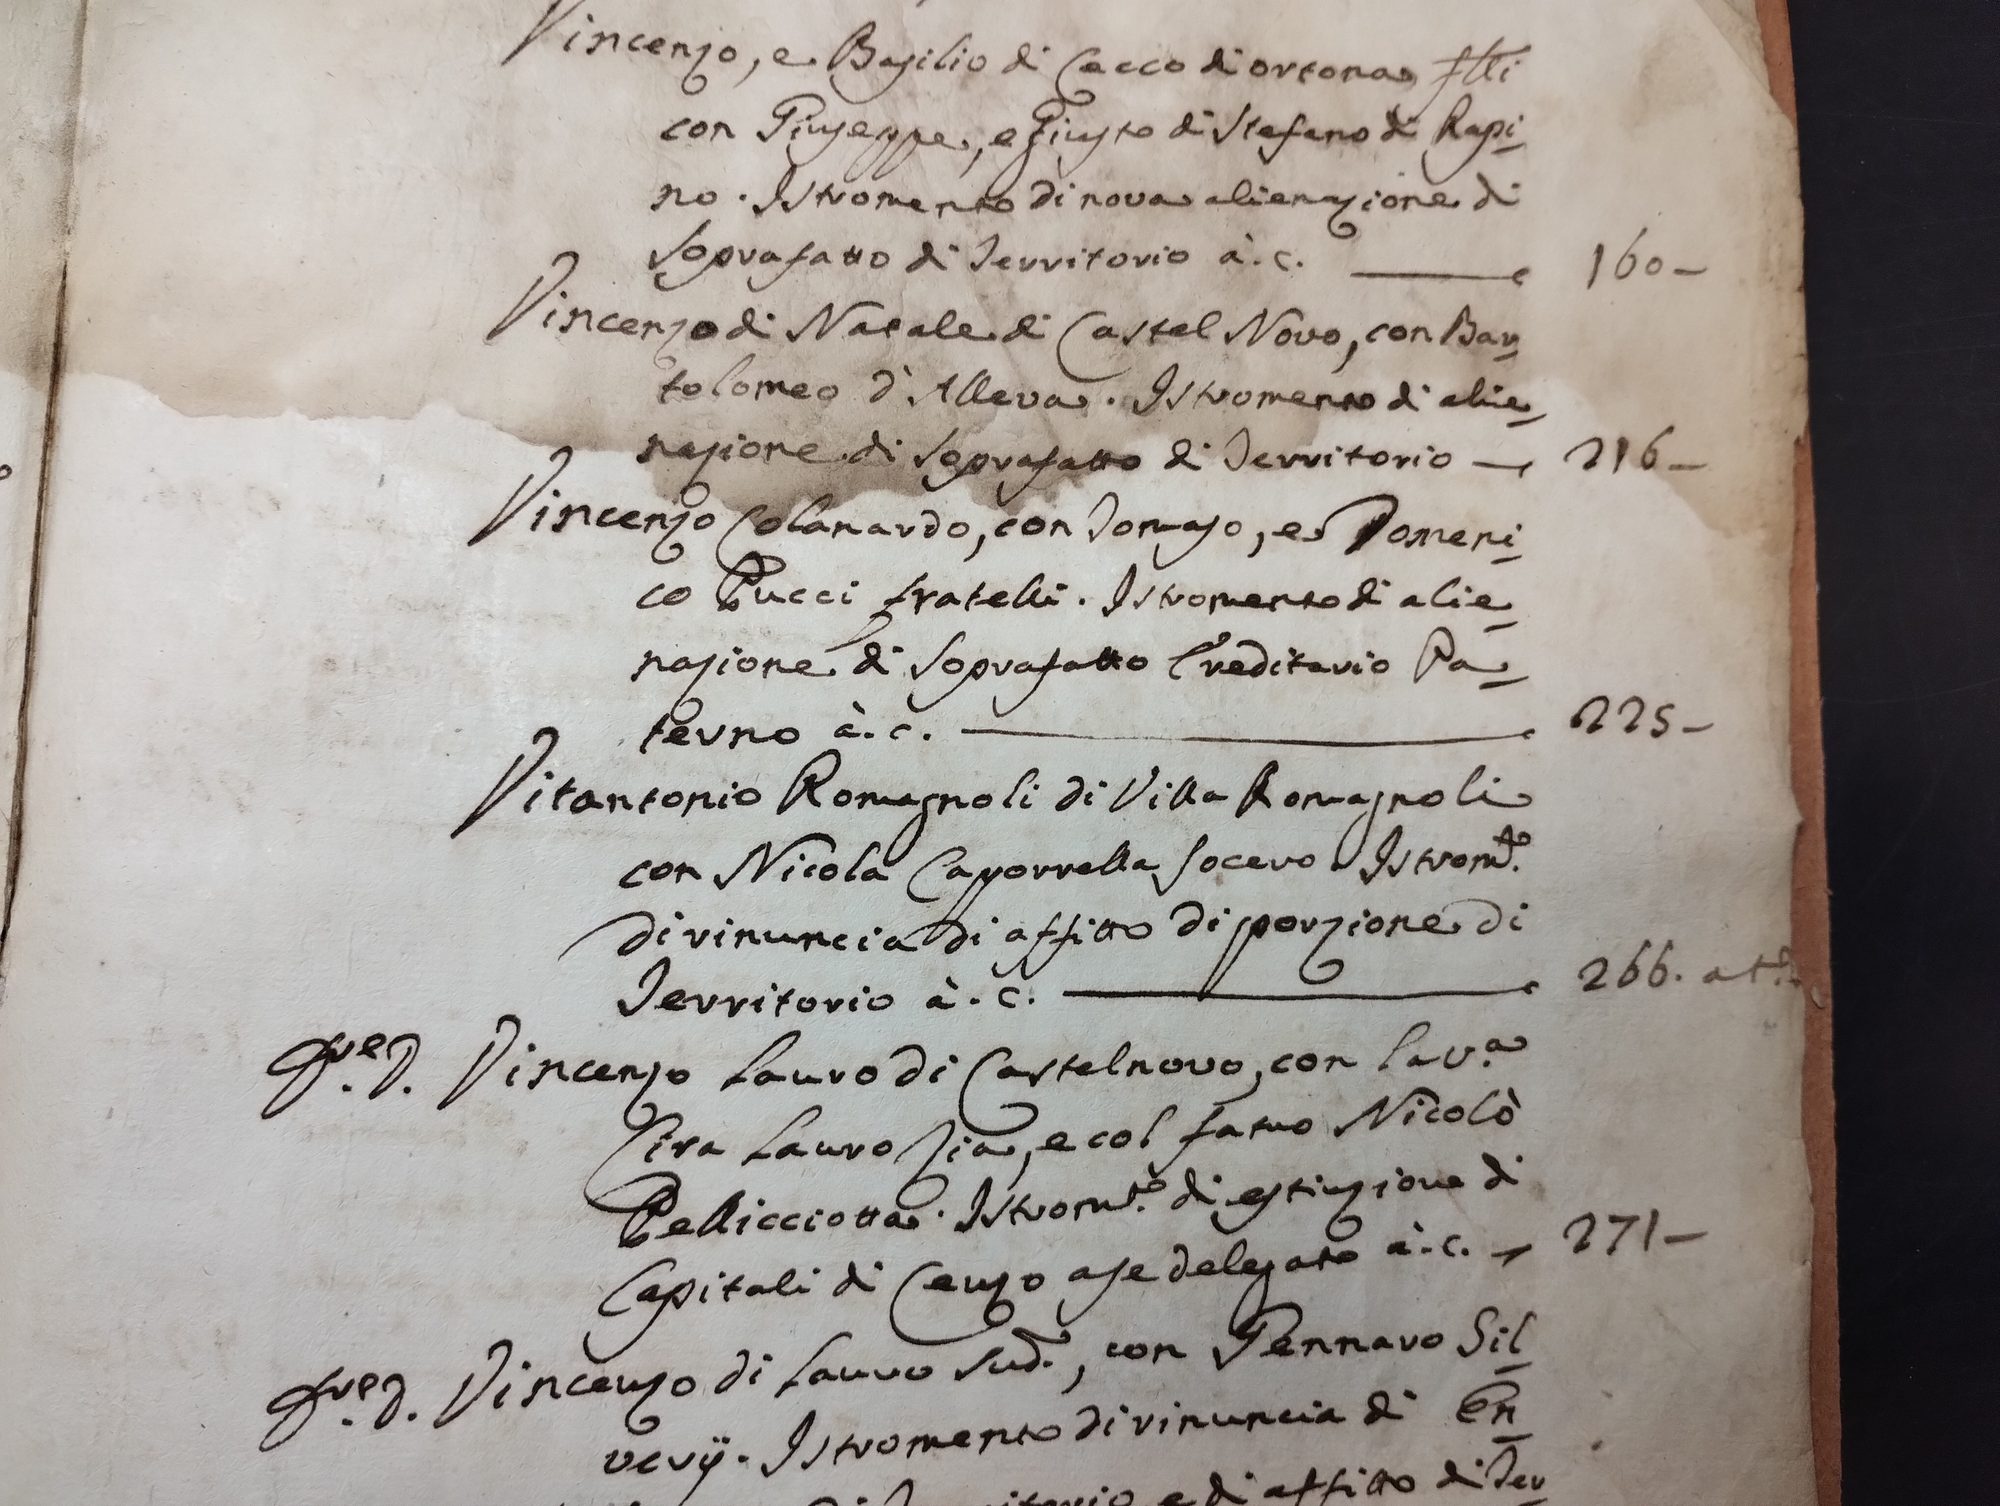 Vincenzo, e Basilio di Cecco di Ortona, ftti
con Giuseppe, e Giusto di Stefano di Rapi-
no. Istromento di nova alienazione di
soprafatto di Territorio à.c. 160-
Vincenzo di Natale di Castel Novo, con Bar-
tolomeo d'Alleva. Istromento di alie-
nazione di soprafatto di Territorio 216-
Vincenzo Colanardo, con Tomaso, e Domeni-
co Pucci fratelli. Istromento di alie-
nazione di soprafatto Ereditario Pa-
terno à.c. 225-
Vitantonio Romagnoli di Villa Romagnoli
con Nicola Caporrella Socero. Istrom.to
di rinuncia di affitto di porzione di
Territorio à.c. 266. at.
Vincenzo Lauro di Castelnovo, con
Lauro Zia, e col Nicolò
Pellicciotta. Istrom.to di estinzione di
Capitali di Censo a se delegato à.c. 271-
Vincenzo di Lauro Sud.o, con Gennaro Sil-
verij. Istromento di rinuncia di En-
e di affitto di Ter-